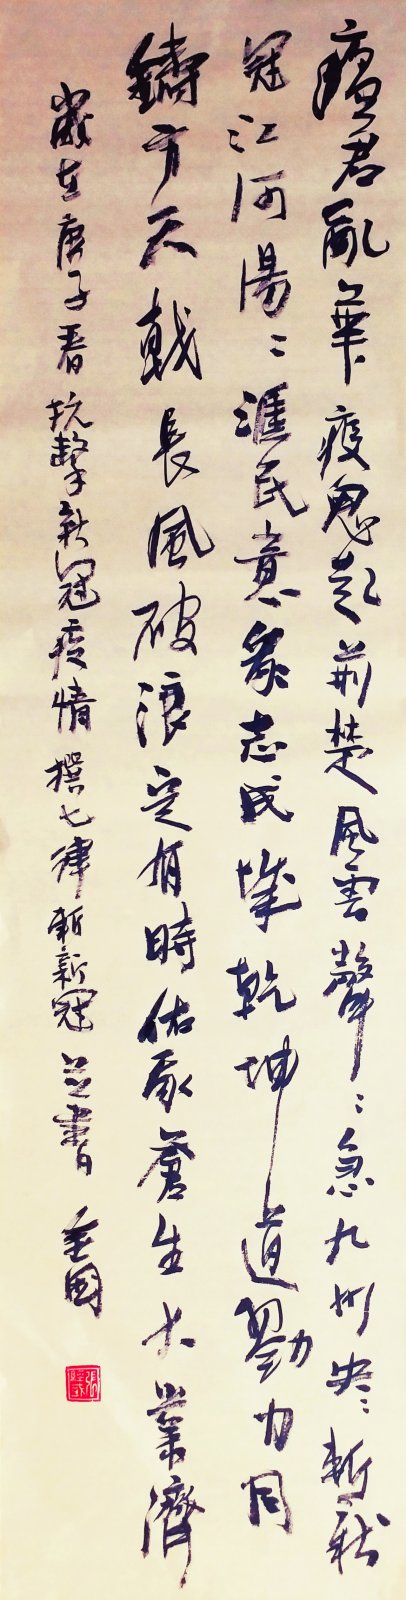 瘟君亂華疫鬼起荊楚風雲聲〻急九州央〻斬新
冠江河湯〻匯民意眾志成城乾坤道勠力同
鑄方天戟長風破浪定有時佑我蒼生大業濟
歲在庚子春抗擊新冠疫情撰七律斬新冠並書 國